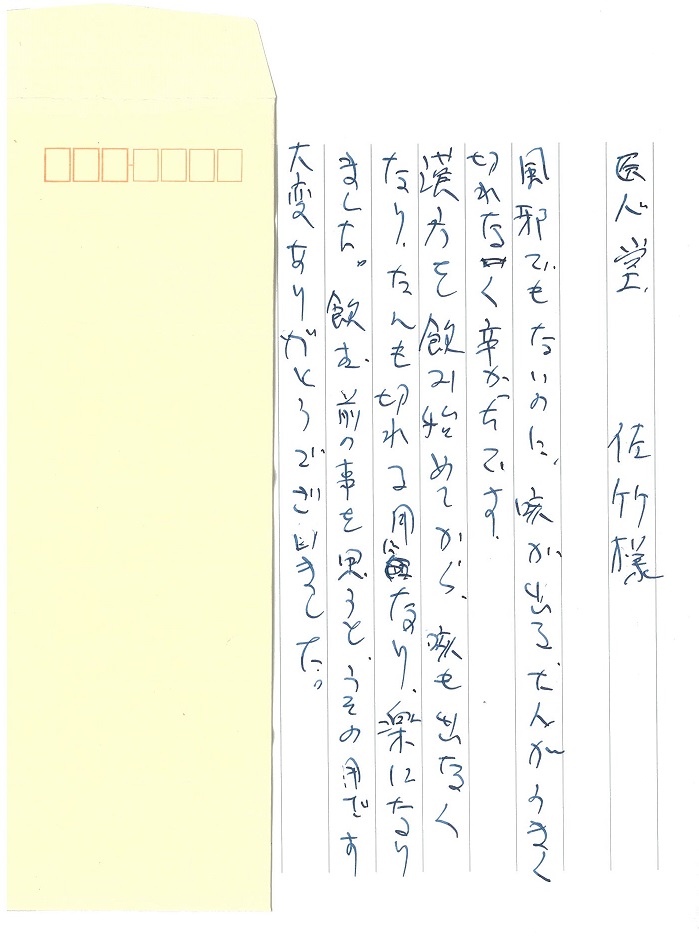 医心堂　佐竹様
風邪でもないのに、咳が出る、たんがうまく
切れなく辛かったです。
漢方を飲み始めてから、咳も出なく
なり、たんも切れる用になり、楽になり
ました。飲む前の事を思うと、うその用です
大変ありがとうございました。